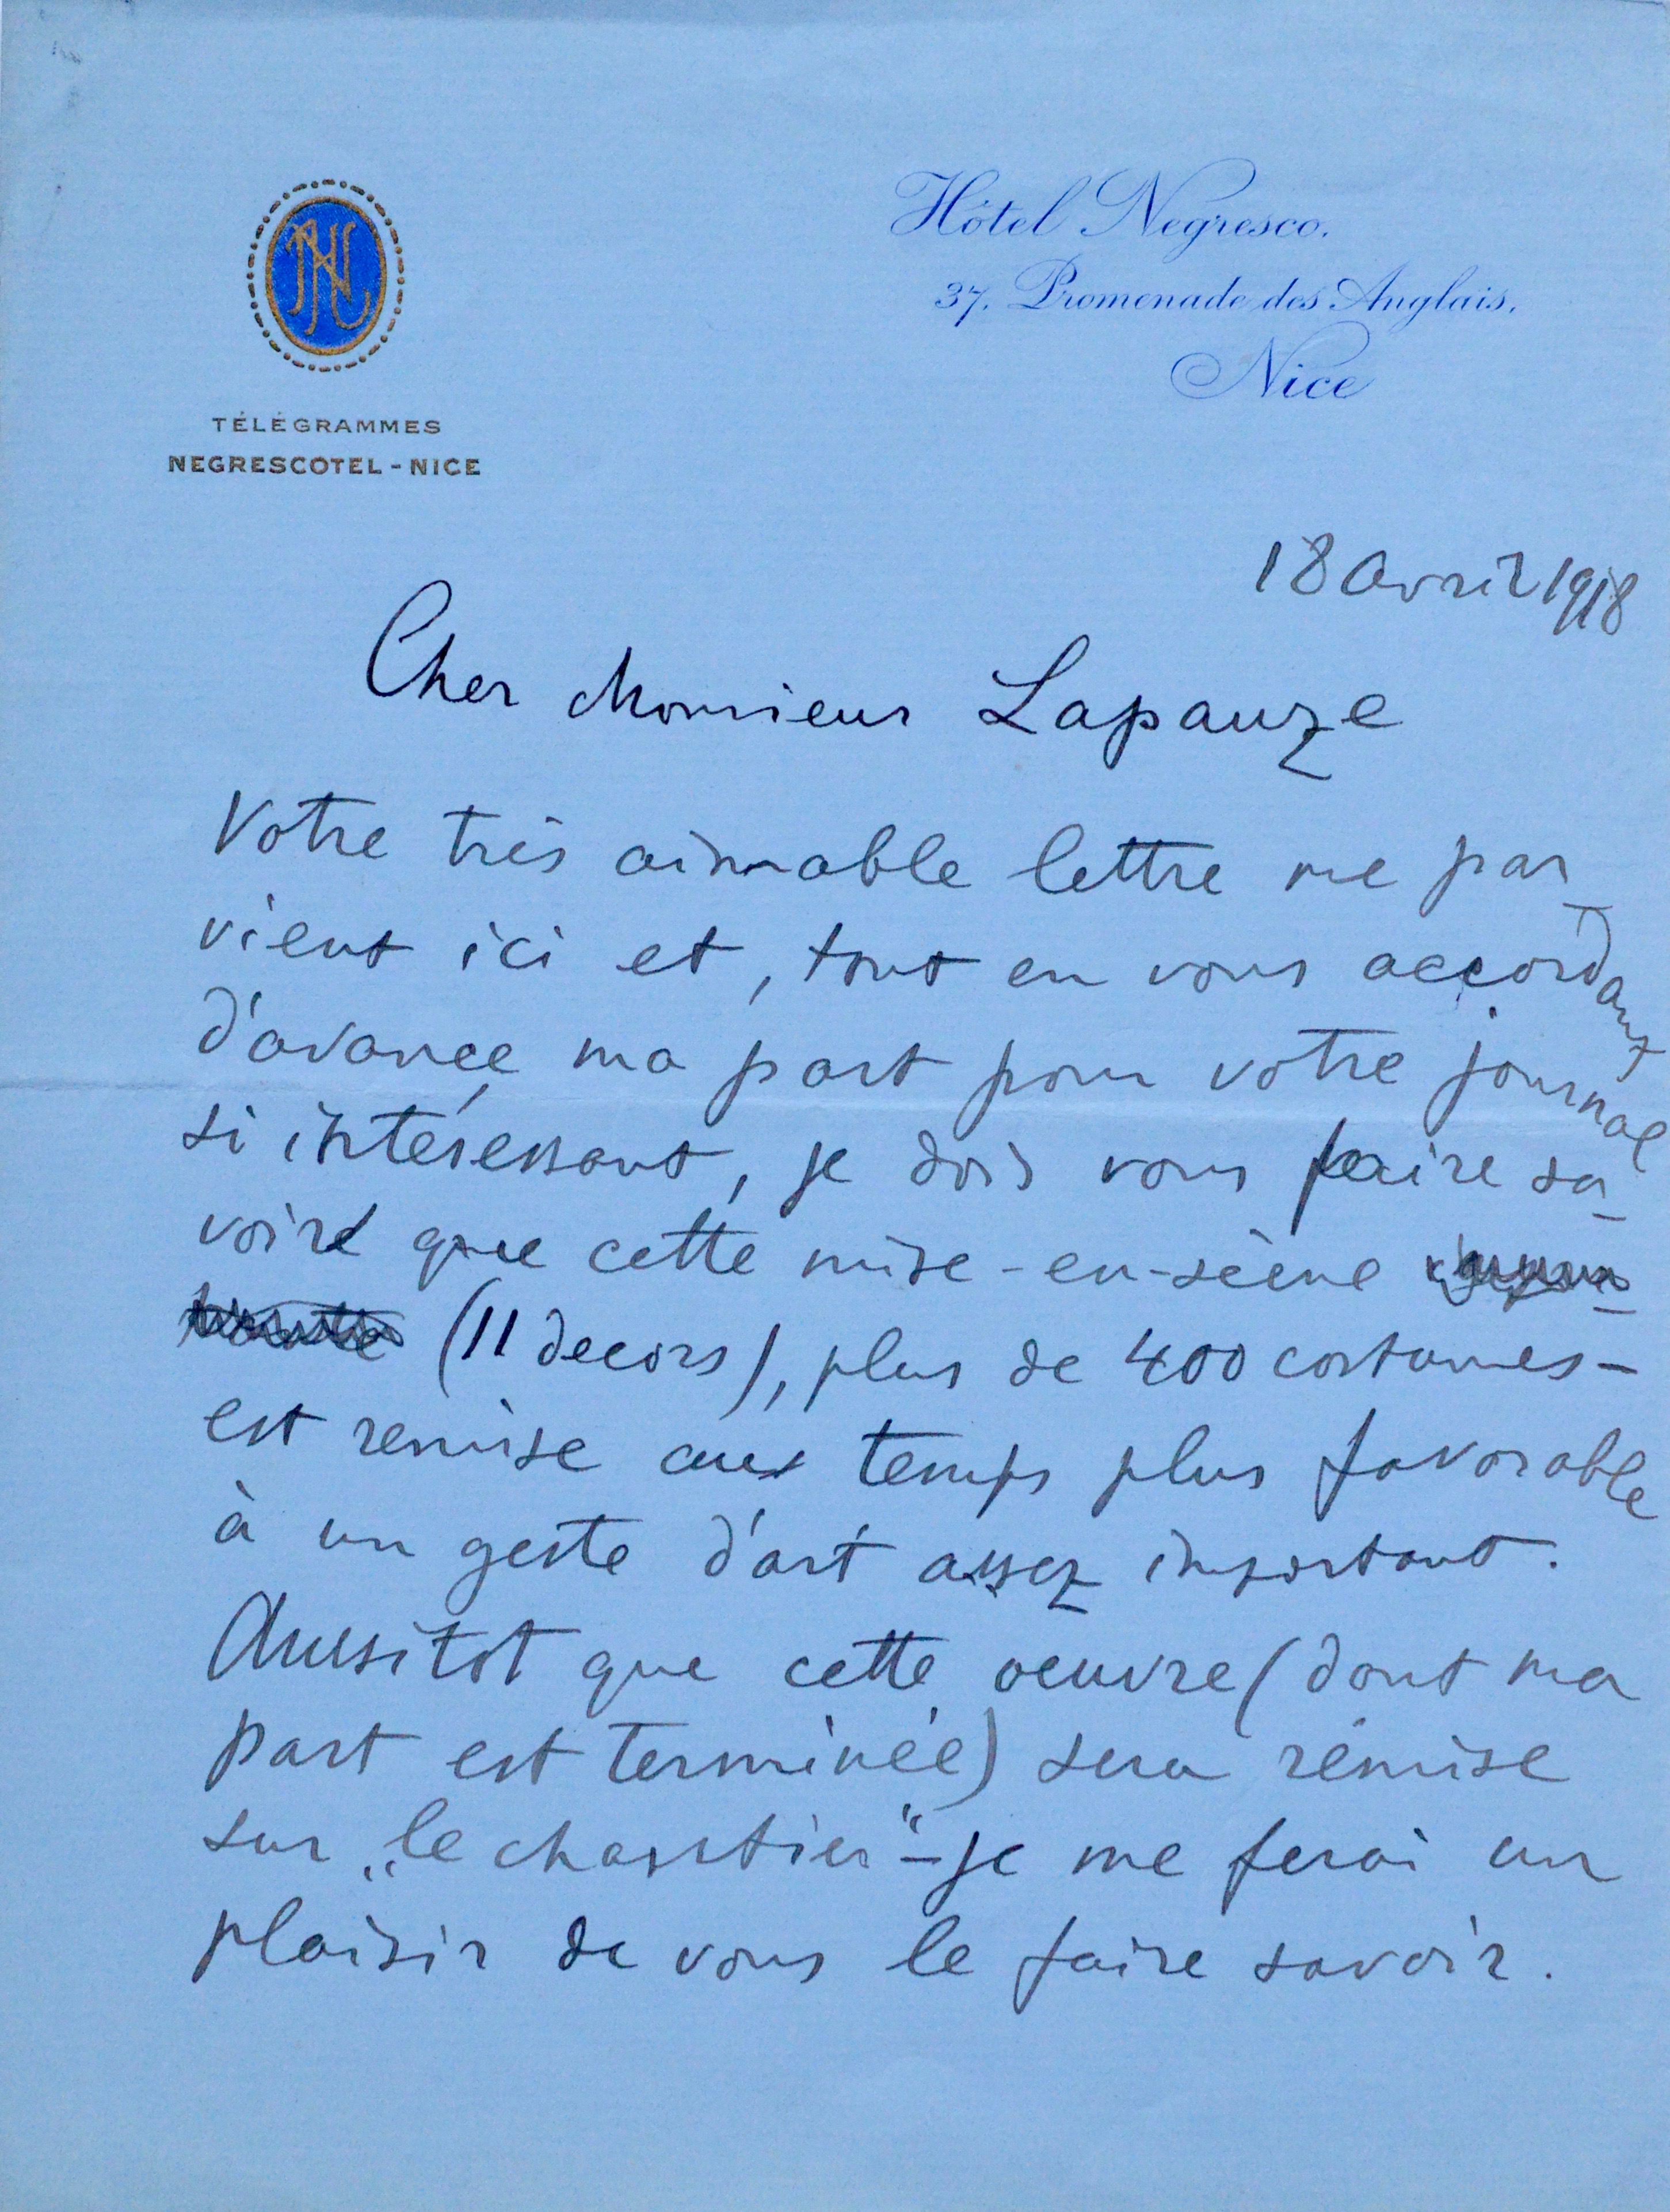 NH
TÉLÉGRAMMES
NEGRESCOTEL - NICE
Hôtel Negresco.
37, Promenade des Anglais.
Nice
18 avril 1918
Cher Monsieur Lapauze
Votre très aimable lettre me par_
vient ici et, tout en vous accordant
d'avance ma part pour votre journal
si intéressant, je dois vous faire sa_
voir que cette mise-en-scène
(11 decors), plus de 400 costumes-
est remise aux temps plus favorable
à un geste d'art assez important.
Aussitot que cette oeuvre (dont ma
part est terminée) sera remise
sur „le chantier“ - je me ferai un
plaisir de vous le faire savoir.